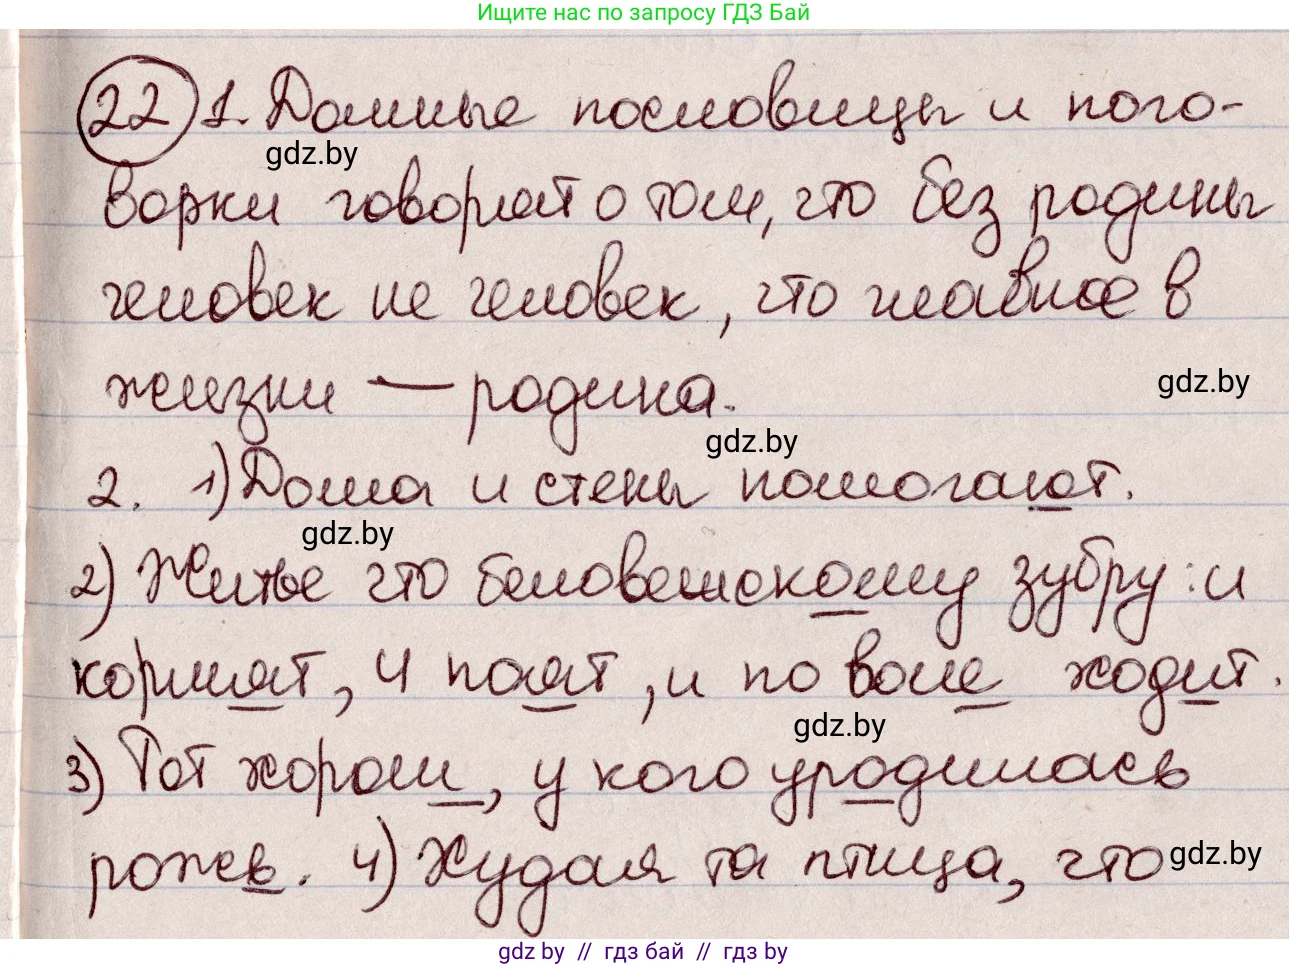 Ищите нас по запросу ГДЗ Бай
22 1. Данные пословицы и пого-
gdz.by
ворки говорят о том, что без родины
человек не человек, что главное в
жизни — родина.
gdz.by
gdz.by
2. 1) Дома и стены помогают.
gdz.by
2) Житье что беловешскому зубру: и
кормят, и поят, и по воле ходит.
gdz.by
3) Тот хорош, у кого уродилась
рожь. 4) Худая та птица, что
gdz.by
gdz.by // гдз бай // гдз by